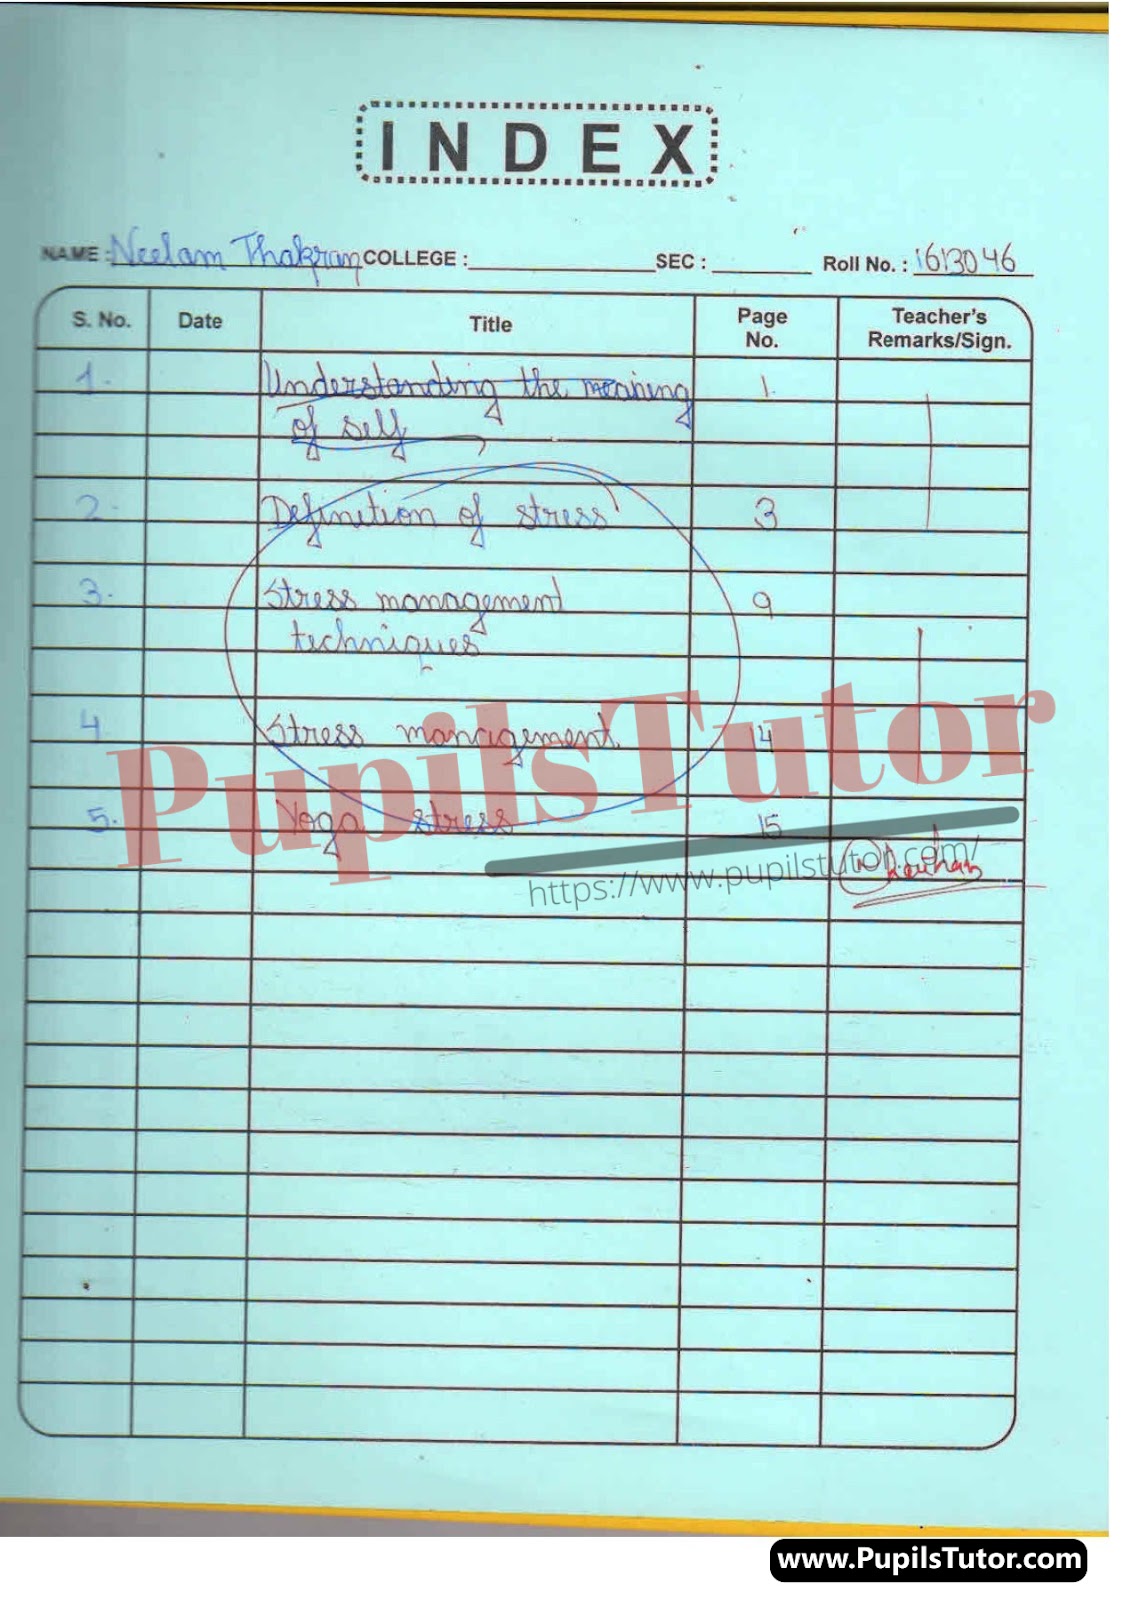 INDEX
NAME : Neelam Thakran COLLEGE : SEC : Roll No. : 1613046
S. No. Date Title Page No. Teacher's Remarks/Sign.
1. Understanding the meaning 1.
of self
2. Definition of stress 3
3. Stress management 9
techniques
4. Stress management. 14
5. Yoga stress 15
PupilsTutor
https://www.pupilstutor.com/
www.PupilsTutor.com